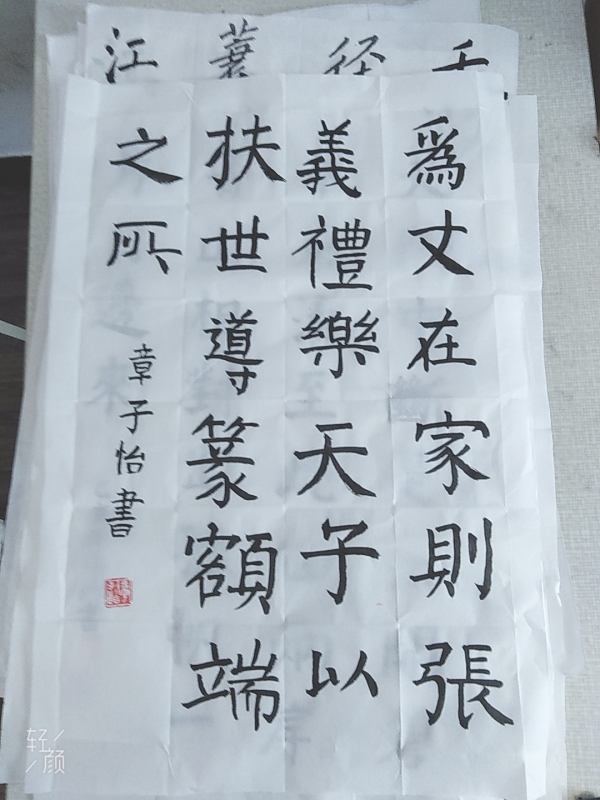 爲丈在家則張
義禮樂天子以
扶世導篆額端
之所
章子怡書
江
蓑
径
千
轻颜